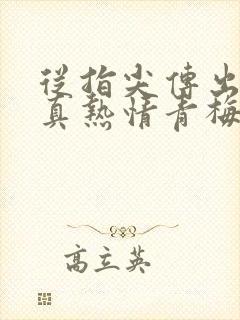 從指尖傳出
真熱情青梅
高立英